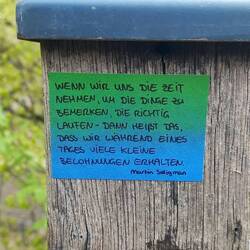 WENN WIR UNS DIE ZEIT
NEHMEN, UM DIE DINGE ZU
BEMERKEN, DIE RICHTIG
LAUFEN - DANN HEIßT DAS,
DASS WIR WÄHREND EINES
TAGES VIELE KLEINE
BELOHNUNGEN ERHALTEN
Martin Seligman